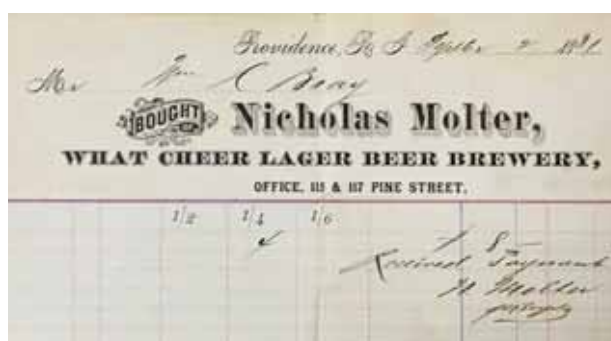 Providence, R. I. Septbr 2 1881
Mr Wm C Bray
BOUGHT OF Nicholas Molter,
WHAT CHEER LAGER BEER BREWERY,
OFFICE, 115 & 117 PINE STREET.
1/2 1/4 1/6
4
8
Received Payment
N Molter